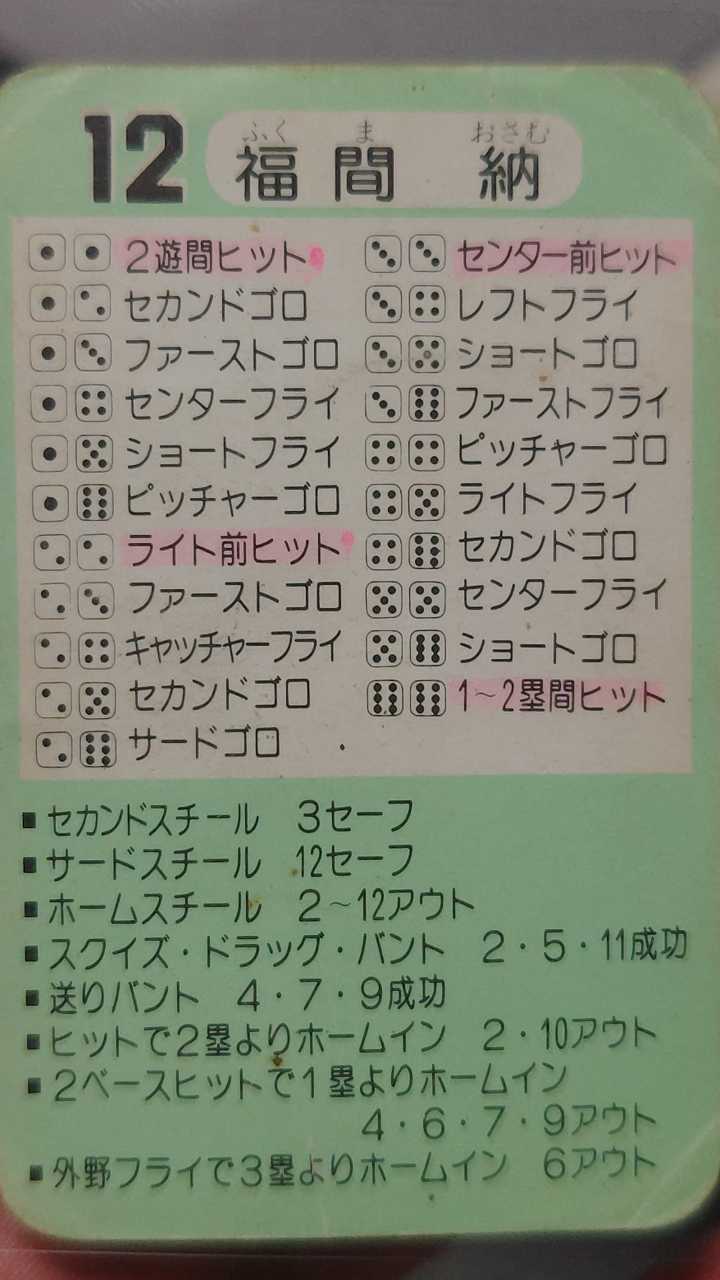 12 福間 納
ふく ま おさむ
2遊間ヒット
セカンドゴロ
ファーストゴロ
センターフライ
ショートフライ
ピッチャーゴロ
ライト前ヒット
ファーストゴロ
キャッチャーフライ
セカンドゴロ
サードゴロ
センター前ヒット
レフトフライ
ショートゴロ
ファーストフライ
ピッチャーゴロ
ライトフライ
セカンドゴロ
センターフライ
ショートゴロ
1~2塁間ヒット
■セカンドスチール 3セーフ
■サードスチール 12セーフ
■ホームスチール 2~12アウト
■スクイズ・ドラッグ・バント 2・5・11成功
■送りバント 4・7・9成功
■ヒットで2塁よりホームイン 2・10アウト
■2ベースヒットで1塁よりホームイン
4・6・7・9アウト
■外野フライで3塁よりホームイン 6アウト